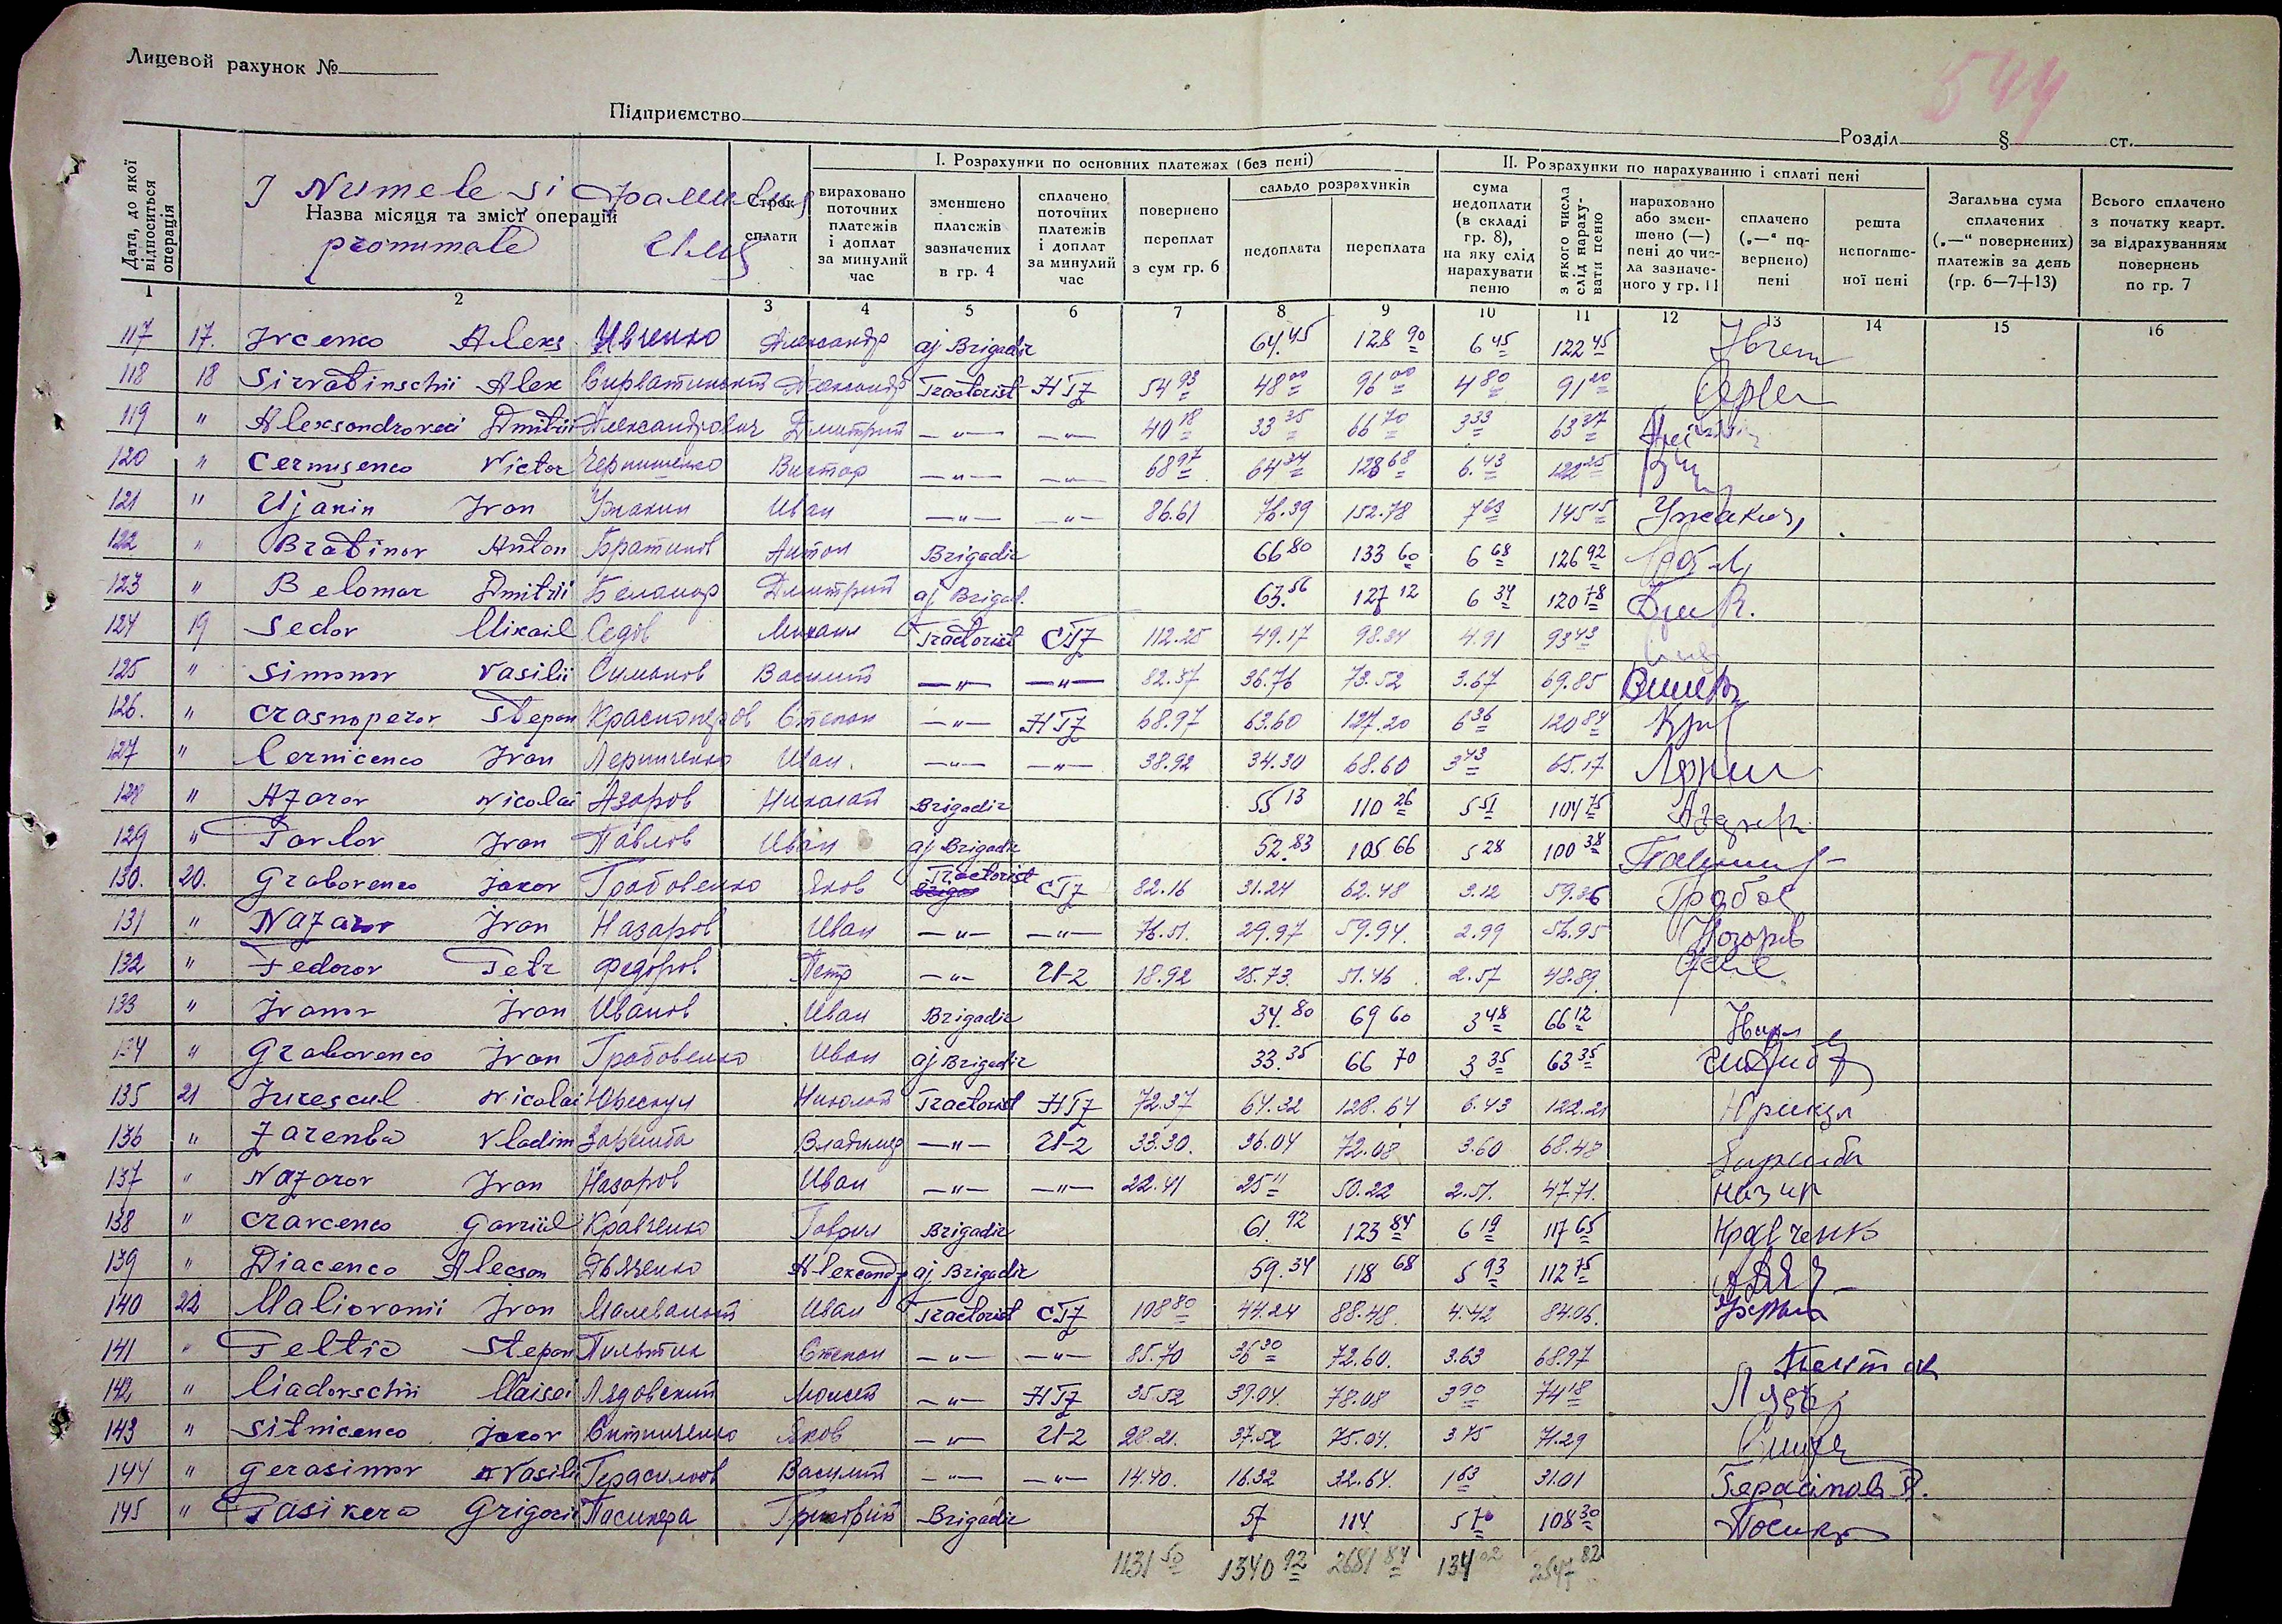 Лицевой рахунок №
544
Підприємство
Розділ § ст.
Дата, до якої відноситься операція
I Numele si Фамилия
Назва місяця та зміст операцій
pronumele Имя
Строк сплати
I. Розрахунки по основних платежах (без пені)
вираховано поточних платежів і доплат за минулий час
зменшено платежів зазначених в гр. 4
сплачено поточних платежів і доплат за минулий час
повернено переплат з сум гр. 6
сальдо розрахунків
недоплата переплата
II. Розрахунки по нарахуванню і сплаті пені
сума недоплати (в складі гр. 8), на яку слід нарахувати пеню
з якого числа слід нарахувати пеню
нараховано або зменшено (—) пені до числа зазначеного у гр. 11
сплачено („—“ повернено) пені
решта непогашеної пені
Загальна сума сплачених („—“ повернених) платежів за день (гр. 6—7+13)
Всього сплачено з початку кварт. за відрахуванням повернень по гр. 7
1 2 3 4 5 6 7 8 9 10 11 12 13 14 15 16
117 17. Ivcenco Alexs Ивченко Александр aj Brigadir 64.45 128 90 6 45 122 45
118 18 Sirvatinschii Alex Сирватинский Александр Tractorist HTZ 54 93 48 00 96 00 4 80 91 20
119 " Alexsandrovici Dmitrii Александрович Дмитрий —"— —"— 40 18 33 35 66 70 3 33 63 37
120 " Cernisenco Victor Чернишенко Виктор —"— —"— 68 97 64 34 128 68 6.43 122 25
121 " Ujanin Ivan Ужакин Иван —"— —"— 86.61 76.39 152.78 7 63 145 15 Ужакин
122 " Bratinov Anton Братинов Антон Brigadir 66 80 133 60 6 68 126 92
123 " Belomar Dmitrii Беломор Дмитрий aj Brigad. 63.56 127 12 6 34 120 78
124 19 Sedov Mixail Седов Михаил Tractorist СТZ 112.25 49.17 98.34 4.91 93 43
125 " Simonov Vasilii Симонов Василий —"— —"— 82.37 36.76 73.52 3.67 69.85
126. " Crasnoperov Stepan Красноперов Степан —"— HTZ 68.97 63.60 127.20 6 36 120 84
127 " Lernicenco Ivan Лерниченко Иван. —"— —"— 38.92 34.30 68.60 3 43 65.17
128 " Azarov Nicolai Азаров Николай Brigadir 55 13 110 26 5 51 104 75
129 " Pavlov Ivan Павлов Иван aj Brigadir 52.83 105 66 5 28 100 38
130. 20. Grabovenco Jacov Грабовенко Яков Tractorist СТZ 82.16 31.24 62.48 3.12 59.36 Грабов
131 " Nazarov Ivan Назаров Иван —"— —"— 76.51. 29.97 59.94. 2.99 56.95 Назаров
132 " Fedorov Petr Федоров Петр —"— U-2 18.92 25.73. 51.46 2.57 48.89
133 " Ivanov Ivan Иванов Иван Brigadir 34.80 69 60 3 48 66 12
134 " Grabovenco Ivan Грабовенко Иван aj Brigadir 33.35 66 70 3 35 63 35
135 21 Jurescul Nicolai Юрескул Николай Tractorist HTZ 72.37 64.32 128.64 6.43 122.21
136 " Zarenba Vladim Заремба Владимир —"— U-2 33.30. 36.04 72.08 3.60 68.48
137 " Nazarov Ivan Назаров Иван —"— —"— 22.41 25 11 50.22 2.51. 47.71.
138 " Cravcenco Gavriil Кравченко Гаврил Brigadir 61.92 123 84 6 19 117 65 Кравченко
139 " Diacenco Alecsan Дьяченко Alexandr aj Brigadir 59.34 118 68 5 93 112 75
140 22 Maliovanii Ivan Малеваний Иван Tractorist СТZ 108 80 44.24 88.48 4.42 84.06.
141 " Peltic Stepan Пильтик Степан —"— —"— 85.70 36 30 72.60. 3.63 68.97
142 " Liadovschii Maisei Лядовский Моисей —"— HTZ 35.52 39.04. 78.08 3 90 74 18
143 " Sitnicenco Jacov Ситниченко Яков —"— U-2 28.21. 37.52 75.04. 3 75 71.29
144 " Gerasimov Vasili Герасимов Василий —"— —"— 14.40. 16.32 32.64. 1 63 31.01 Герасімов В.
145 " Pasikera Grigorii Пасикера Григорий Brigadir 57 114 5 70 108 30
1131 50 1340 92 2681 84 134 02 2547 82